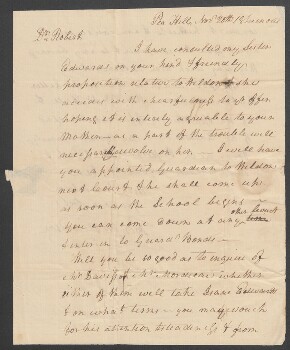 Pea Hill, Novr 20th
Dr. Robert
I have consulted my Sister
Edwards on your kind & friendly
proposition relative to Weldon & she
accedes with cheerfulness to yr offer
hoping it is entirely agreeable to your
Mother — as a part of the trouble will
necessarily devolve on her — I will have
you appointed Guardian to Weldon
next Court & he shall come up
as soon as the School begins
You can come down at any other Court &
enter into Guardn Bonds —
Will you be so good as to inquire of
Mr. or Mr. whether
either of them will take Isaac Edwards
& on what terms — you may vouch
for his attention steadiness & & from